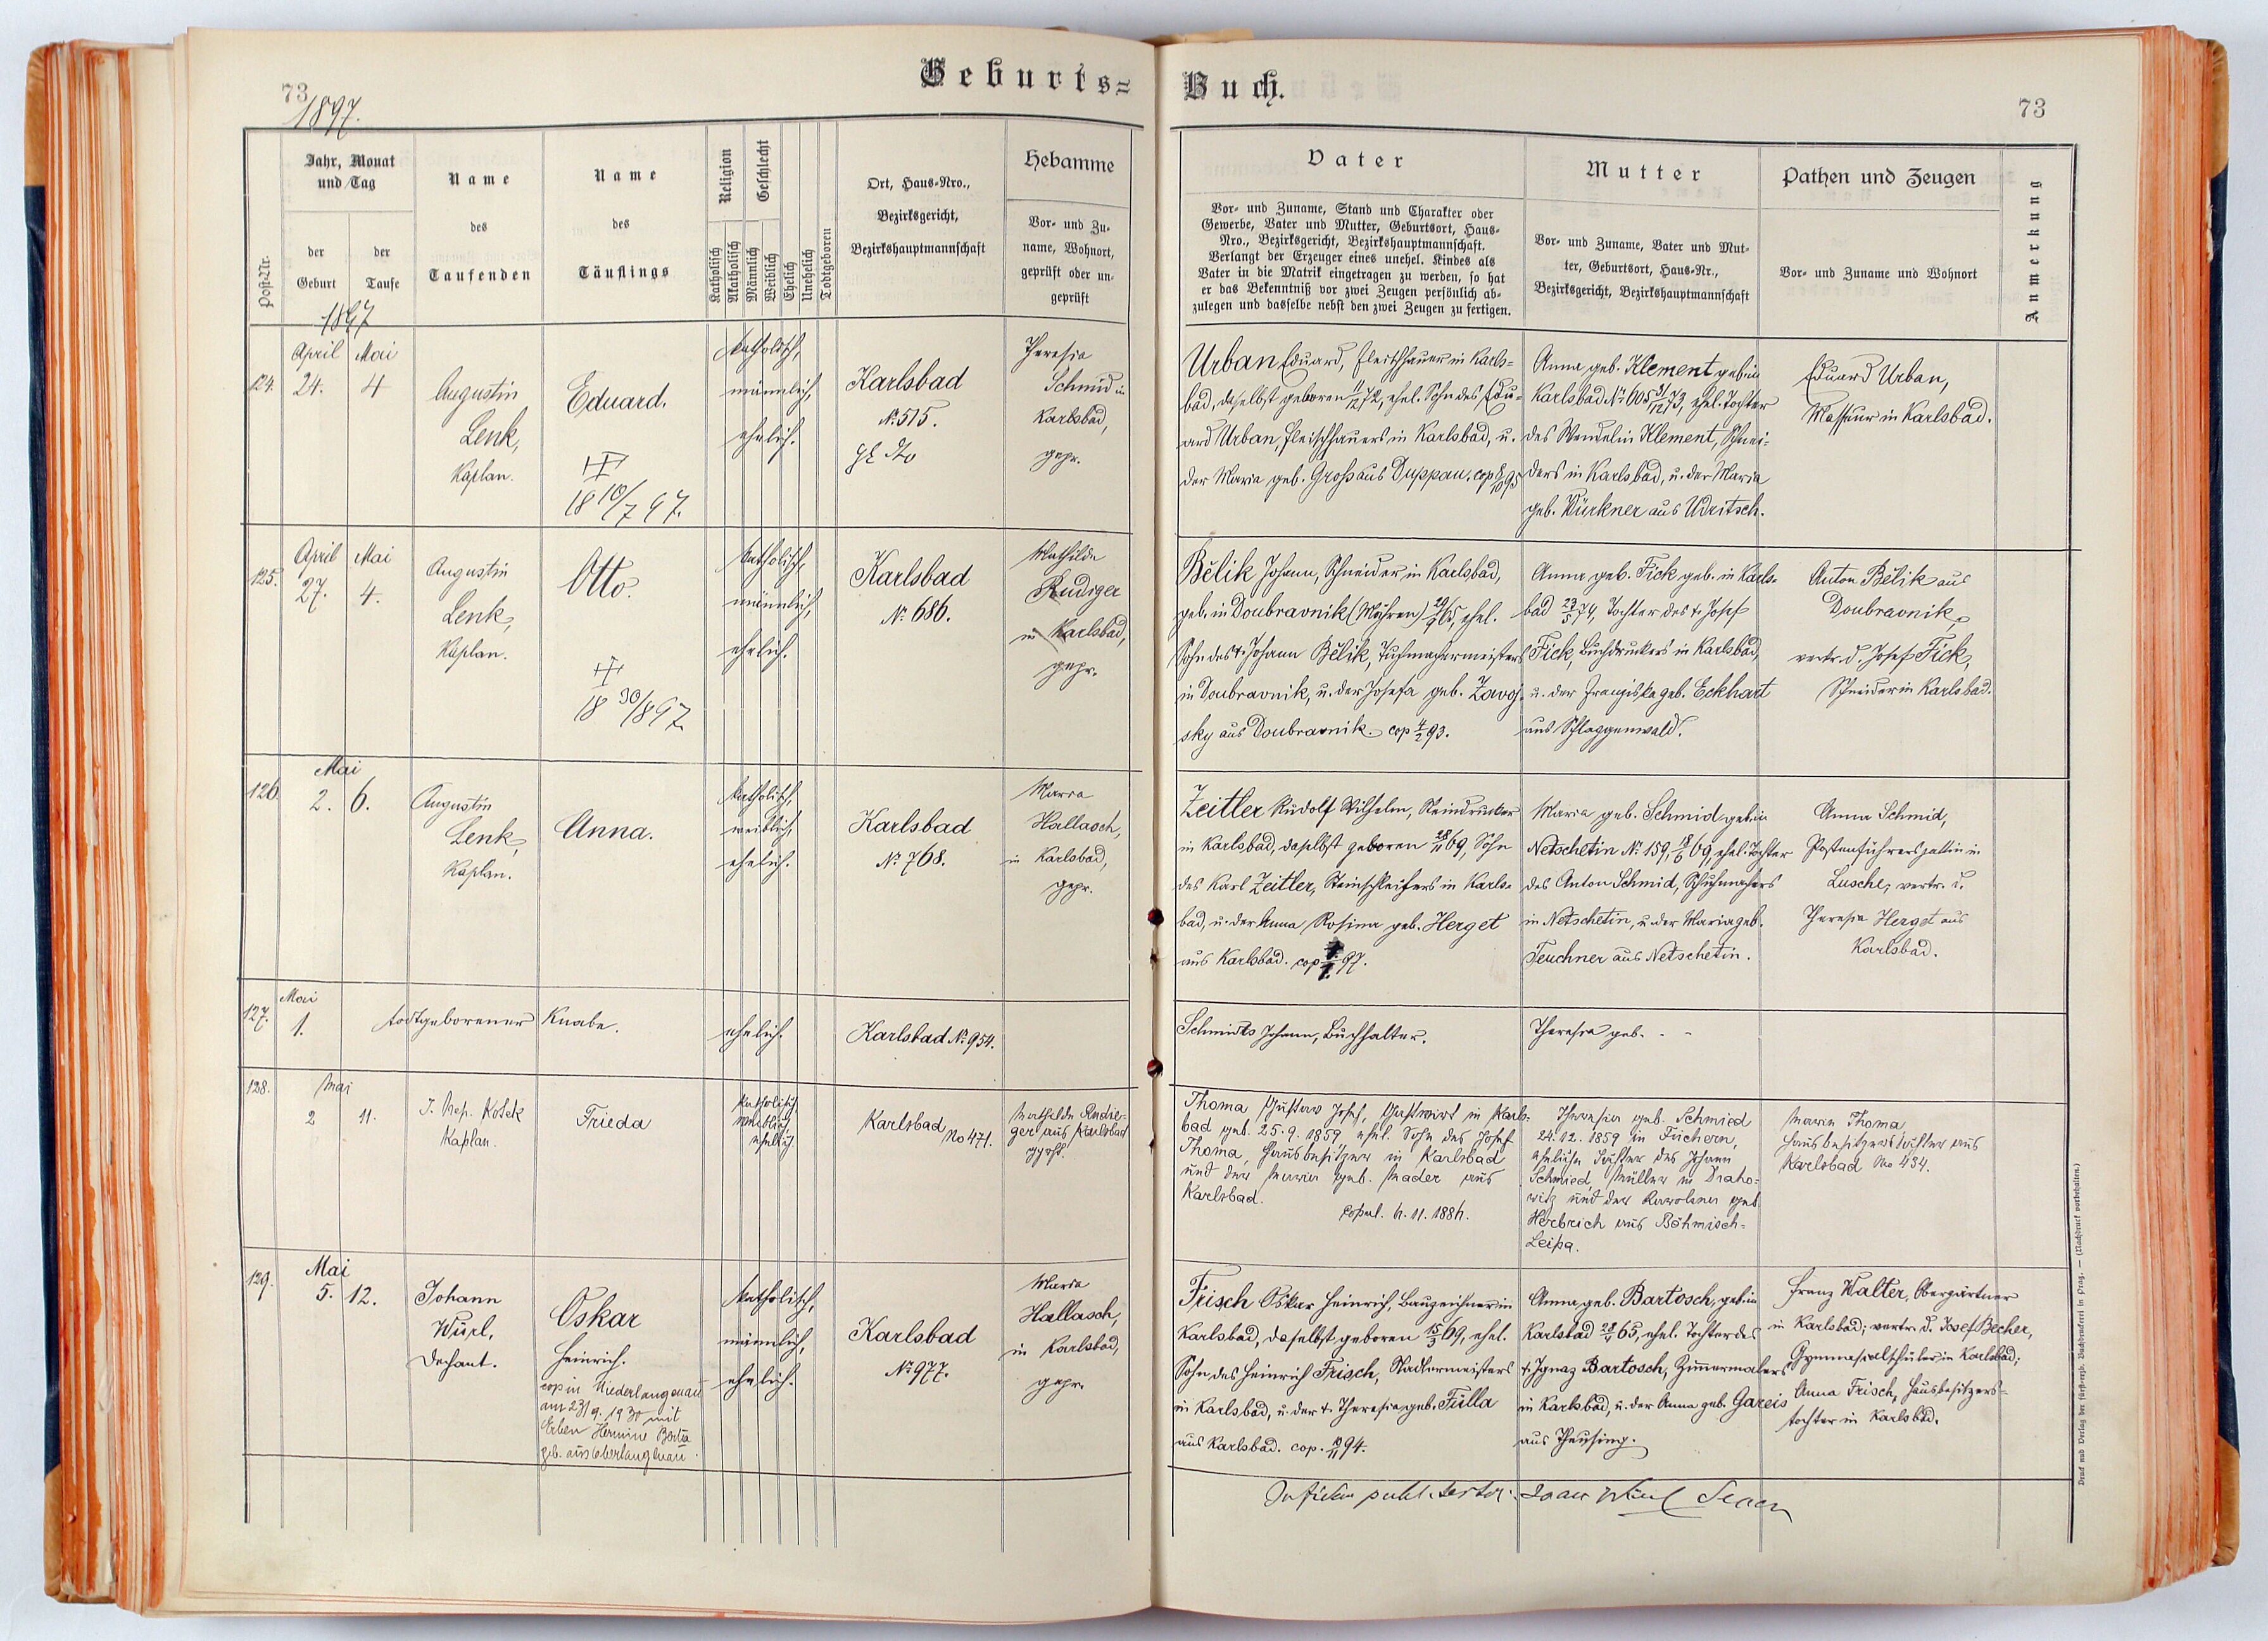 Geburts=
Buch.
73
1897.
73
Post-Nr.
Jahr, Monat
und Tag
der
Geburt
der
Taufe
Name
des
Taufenden
Name
des
Täuflings
Religion
Geschlecht
Katholisch
Akatholisch
Männlich
Weiblich
Ehelich
Unehelich
Todtgeboren
Ort, Haus-Nro.,
Bezirksgericht,
Bezirkshauptmannschaft
Hebamme
Vor- und Zu-
name, Wohnort,
geprüft oder un-
geprüft
Vater
Vor- und Zuname, Stand und Charakter oder
Gewerbe, Vater und Mutter, Geburtsort, Haus-
Nro., Bezirksgericht, Bezirkshauptmannschaft.
Verlangt der Erzeuger eines unehel. Kindes als
Vater in die Matrik eingetragen zu werden, so hat
er das Bekenntniß vor zwei Zeugen persönlich ab-
zulegen und dasselbe nebst den zwei Zeugen zu fertigen.
Mutter
Vor- und Zuname, Vater und Mut-
ter, Geburtsort, Haus-Nr.,
Bezirksgericht, Bezirkshauptmannschaft
Pathen und Zeugen
Vor- und Zuname und Wohnort
Anmerkung
1897
124.
April
24.
Mai
4
Augustin
Lenk,
Kaplan.
Eduard.
18 10/7 97.
katholisch,
männlich,
ehelich.
Karlsbad
№ 515.
Theresia
Schmid in
Karlsbad,
gepr.
Urban Eduard, Fleischhauer in Karls-
bad, daselbst geboren 11/12 72, ehel. Sohn des Edu-
ard Urban, Fleischhauers in Karlsbad, u.
der Maria geb. Groß aus Duppau. cop
Anna geb. Klement geb. in
Karlsbad № 605 31/12 73, ehel. Tochter
des Wendelin Klement, Schnei-
ders in Karlsbad, u. der Maria
geb. Würkner aus Udritsch.
Eduard Urban,
Masseur in Karlsbad.
125.
April
27.
Mai
4.
Augustin
Lenk,
Kaplan.
Otto.
18 30/8 97.
katholisch,
männlich,
ehelich.
Karlsbad
№ 686.
Mathilde
Rudiger
in Karlsbad,
gepr.
Bělik Johann, Schneider in Karlsbad,
geb. in Doubravnik (Mähren) 65, ehel.
Sohn des † Johann Bělik, Tuchmachermeisters
in Doubravnik, u. der Josefa geb. Zavoj-
sky aus Doubravnik. cop 4/2 93.
Anna geb. Fick geb. in Karls-
bad 23/5 74, Tochter des † Josef
Fick, Buchdruckers in Karlsbad,
u. der Franziska geb. Eckhart
aus Schlaggenwald.
Anton Bělik aus
Doubravnik,
vertr. d. Josef Fick,
Schneider in Karlsbad.
126.
Mai
2. 6.
Augustin
Lenk,
Kaplan.
Anna.
katholisch,
weiblich,
ehelich.
Karlsbad
№ 768.
Maria
Hallasch,
in Karlsbad,
gepr.
Zeitler Rudolf Wilhelm, Steindrucker
in Karlsbad, daselbst geboren 28/11 69, Sohn
des Karl Zeitler, Steinschleifers in Karls-
bad, u. der Anna Rosina geb. Herget
aus Karlsbad. cop 97.
Maria geb. Schmid geb. in
Netschetin № 159, 18/6 69, ehel. Tochter
des Anton Schmid, Schuhmachers
in Netschetin, u. der Maria geb.
Teuchner aus Netschetin.
Anna Schmid,
Postenführersgattin in
Lusche, vertr. d.
Theresia Herget aus
Karlsbad.
127.
Mai
1.
todtgeborener Knabe.
ehelich.
Karlsbad № 954.
Schmidts Johann, Buchhalter.
Theresia geb. - -
128.
Mai
2 11.
J. Nep. Košek
Kaplan.
Frieda
katholisch
weiblich
ehelich
Karlsbad No 471.
Mathilde Rudie-
ger aus Karlsbad
gepft.
Thoma Gustav Josef, Gastwirt in Karls-
bad geb. 25.9.1859, ehel. Sohn des Josef
Thoma, Hausbesitzer in Karlsbad
und der Maria geb. Mader aus
Karlsbad.
copul. 4.11.1884.
Theresia geb. Schmied
24.12.1859 in Fischern,
eheliche Tochter des Johann
Schmied, Müller in Draho-
witz und der Karolina geb
Herbrich aus Böhmisch-
Leipa.
Marie Thoma
Hausbesitzerstochter aus
Karlsbad No 434.
129.
Mai
5. 12.
Johann
Würl,
Dechant.
Oskar
Heinrich.
cop in Niederlangenau
am 23/9. 1930 mit
Erben Hermine Berta
geb. aus Oberlangenau.
katholisch,
männlich,
ehelich.
Karlsbad
№ 977.
Maria
Hallasch,
in Karlsbad,
gepr.
Frisch Oskar Heinrich, Bauzeichner in
Karlsbad, daselbst geboren 15/3 69, ehel.
Sohn des Heinrich Frisch, Nadlermeisters
in Karlsbad, u. der † Theresia geb. Fülla
aus Karlsbad. cop. 94.
Anna geb. Bartosch, geb. in
Karlsbad 65, ehel. Tochter des
† Ignaz Bartosch, Zimmermalers
in Karlsbad, u. der Anna geb. Gareis
aus Theusing.
Franz Walter, Obergärtner
in Karlsbad; vertr. d. Josef Becher,
Gymnasialschüler in Karlsbad;
Anna Frisch, Hausbesitzers-
tochter in Karlsbad.
Druck und Verlag der fürst-erzb. Buchdruckerei in Prag. — (Nachdruck vorbehalten.)